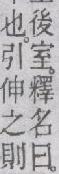 後室。釋名曰。
也。引伸之則